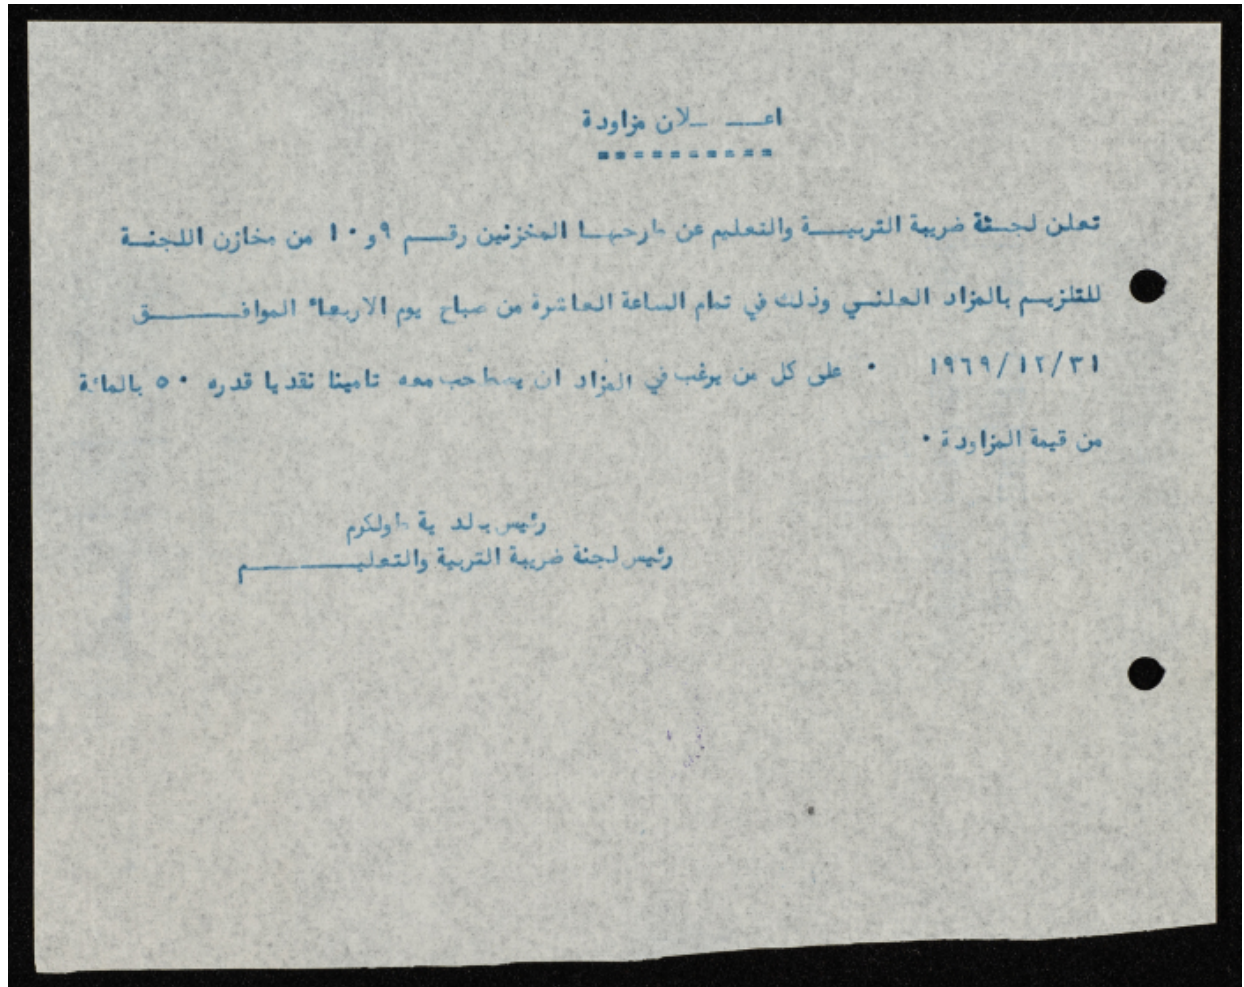 اعـــ ـــلان مزاودة
==========
تعلن لجنة ضريبة التربيـــة والتعليم عن طرحهـا المخزنين رقــم ٩ و ١٠ من مخازن اللجنــة
للتلزيــم بالمزاد العلنــي وذلك في تمام الساعة العاشرة من صباح يوم الاربعاء الموافـــــق
١٩٦٩/١٢/٣١ ٠ على كل من يرغب في المزاد ان يصطحب معه تامينا نقديا قدره ٥٠ بالمائة
من قيمة المزاودة ٠
رئيس بلدية طولكرم
رئيس لجنة ضريبة التربية والتعليــــــم